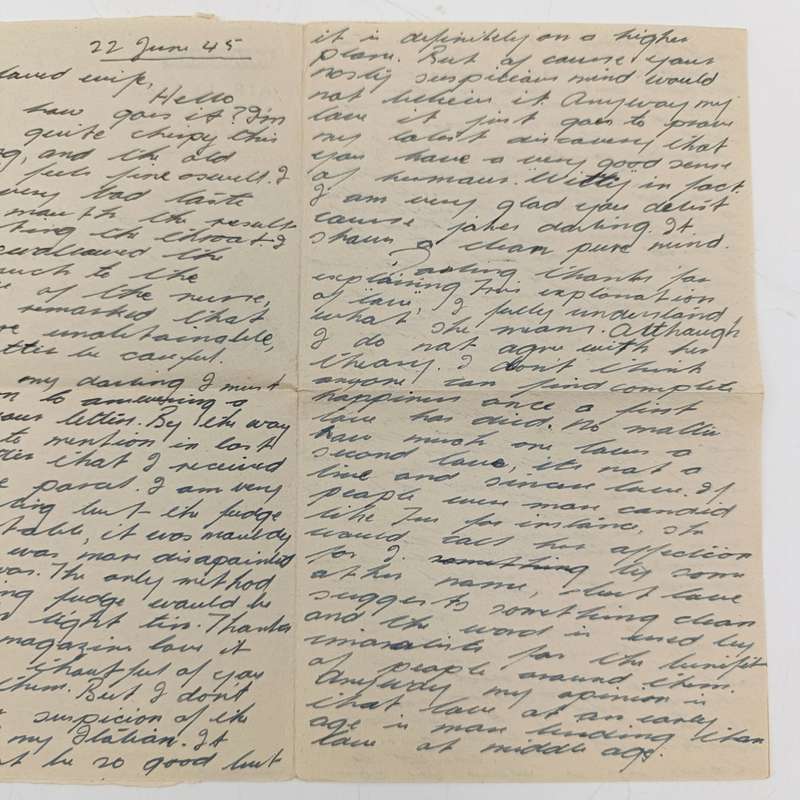 22 June 45
loved wife,
Hello
how goes it? I'm
quite chirpy this
and the old
feels fine aswell. I
very bad taste
mouth the results
the throat I
swallowed the
much to the
of the nurse,
remarked that
unobtainable,
better be careful.
my darling I must
to answering a
your letter. By the way
to mention in last
that I received
parcel. I am very
but the fudge
it was mouldy
was more disapointed
was. The only method
fudge would be
light tin. Thanks
magazine love it
thoutful of you
them. But I don't
suspicion of the
my Italian. It
be so good but
it is definitely on a higher
plane. But of cause your
nosty suspicious mind would
not believe it. Anyway my
love it just goes to prove
my latest discovery that
you have a very good sense
of humour. Witty in fact
I am very glad you detest
course jokes darling. It
shows a clean pure mind.
Darling thanks for
explaining explanation
of "love", I fully understand
what she means. Although
I do not agree with her
theory. I don't think
anyone can find complete
happiness once a first
love has died. No matter
how much one loves a
second love, its not a
true and sincere love. If
people were more candid
like for instance, she
would call her affection
for J. something by some
other name, but love
suggests something clean
and the word is used by
imoralists for the benefit
of people around them.
Anyway my opinion is
that love at an early
age is more binding than
love at middle age.